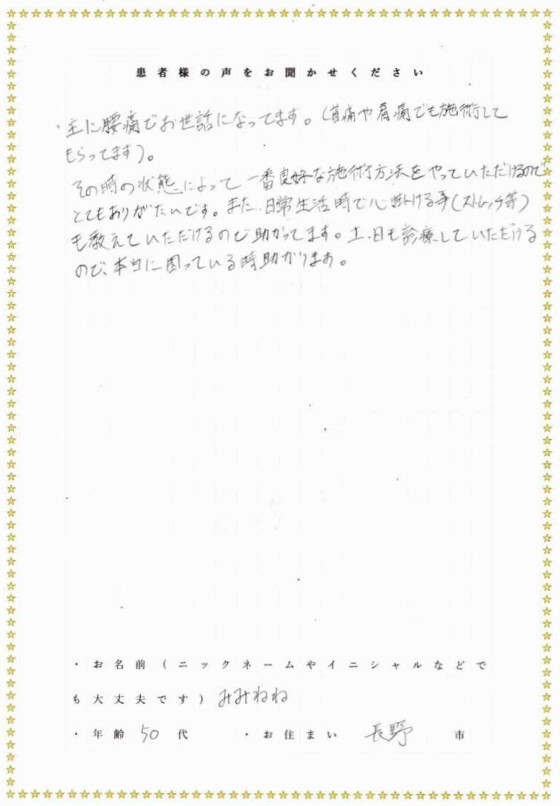 患者様の声をお聞かせください
・主に腰痛でお世話になってます。(首痛や肩痛でも施術して
もらってます)。
その時の状態によって一番良好な施術方法をやっていただけるので
とてもありがたいです。また、日常生活時で心掛ける事(ストレッチ等)
も教えていただけるので助かってます。土、日も診療していただける
ので、本当に困っている時助かります。
・お名前(ニックネームやイニシャルなどで
も大丈夫です)みみねね
・年齢 50 代 ・お住まい 長野 市